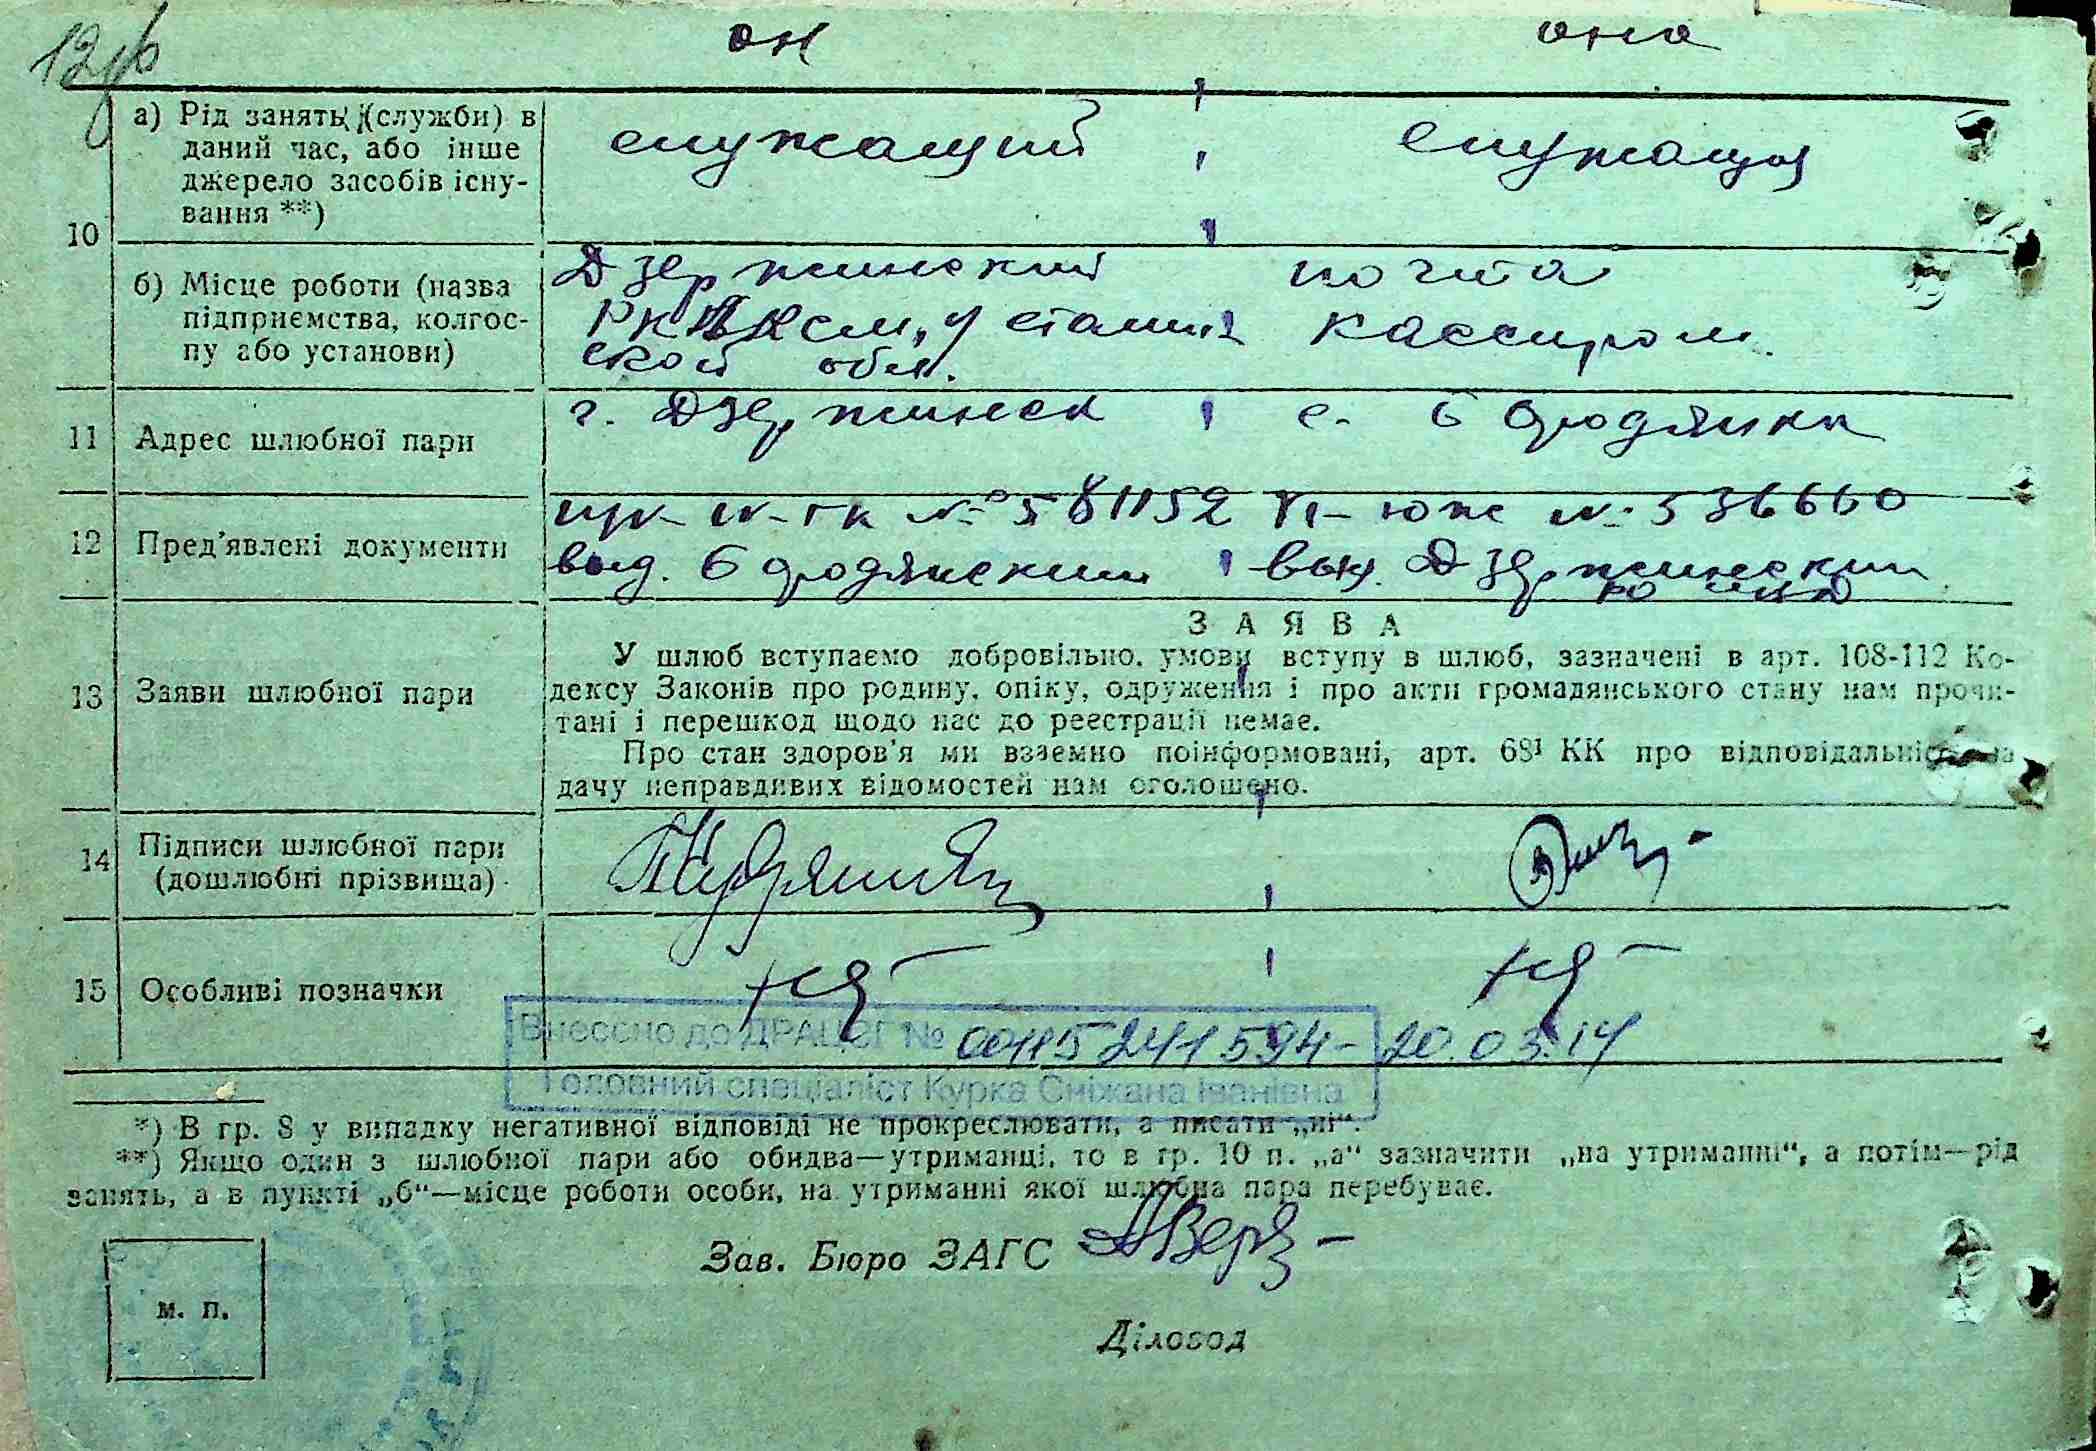 он она
а) Рід занять (служби) в
даний час, або інше
джерело засобів існу-
вання **)
служащий служащая
10
б) Місце роботи (назва
підприємства, колгос-
пу або установи)
Дзержинский почта
кассиром.
ской обл.
11 Адрес шлюбної пари г. Дзержинск с. Бородянка
12 Пред'явлені документи
№ 581152 № 536660
выд. Бородянским выд. Дзержинским
13 Заяви шлюбної пари
ЗАЯВА
У шлюб вступаємо добровільно, умови вступу в шлюб, зазначені в арт. 108-112 Ко-
дексу Законів про родину, опіку, одруження і про акти громадянського стану нам прочи-
тані і перешкод щодо нас до реєстрації немає.
Про стан здоров'я ми взаємно поінформовані, арт. 68¹ КК про відповідальність за
дачу неправдивих відомостей нам оголошено.
14 Підписи шлюбної пари
(дошлюбні прізвища)
15 Особливі позначки
Внесено до ДРАЦСГ № 00115241594 - 20.03.14
Головний спеціаліст Курка Сніжана Іванівна
*) В гр. 8 у випадку негативної відповіді не прокреслювати, а писати „ні“.
**) Якщо один з шлюбної пари або обидва—утриманці, то в гр. 10 п. „а“ зазначити „на утриманні“, а потім—рід
занять, а в пункті „б“—місце роботи особи, на утриманні якої шлюбна пара перебуває.
Зав. Бюро ЗАГС
м. п.
Діловод